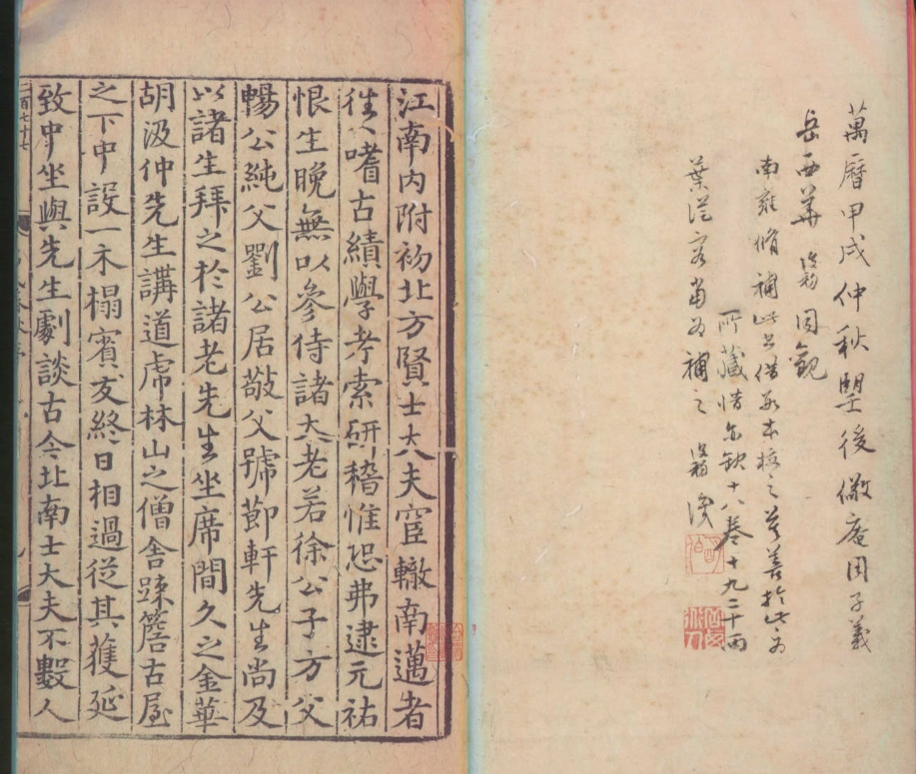 萬曆甲戌仲秋朢後儆庵周子義
岳西華 同觀
南雍脩補此呂借 本校之 善於此 
所藏惜亦缺十八卷十九二十兩
葉從 當為補之
江南內附初北方賢士大夫宦轍南邁者
徃〻嗜古績學考索硏稽惟恐弗逮元祐
恨生晚無以參侍諸大老若徐公子方父
暢公純父劉公居敬父號節軒先生尚及
以諸生拜之於諸老先生坐席間久之金華
胡汲仲先生講道虎林山之僧舍踈簷古屋
之下中設一木榻賓友終日相過從其獲延
致中坐與先生劇談古今北南士大夫不數人
二百七十七